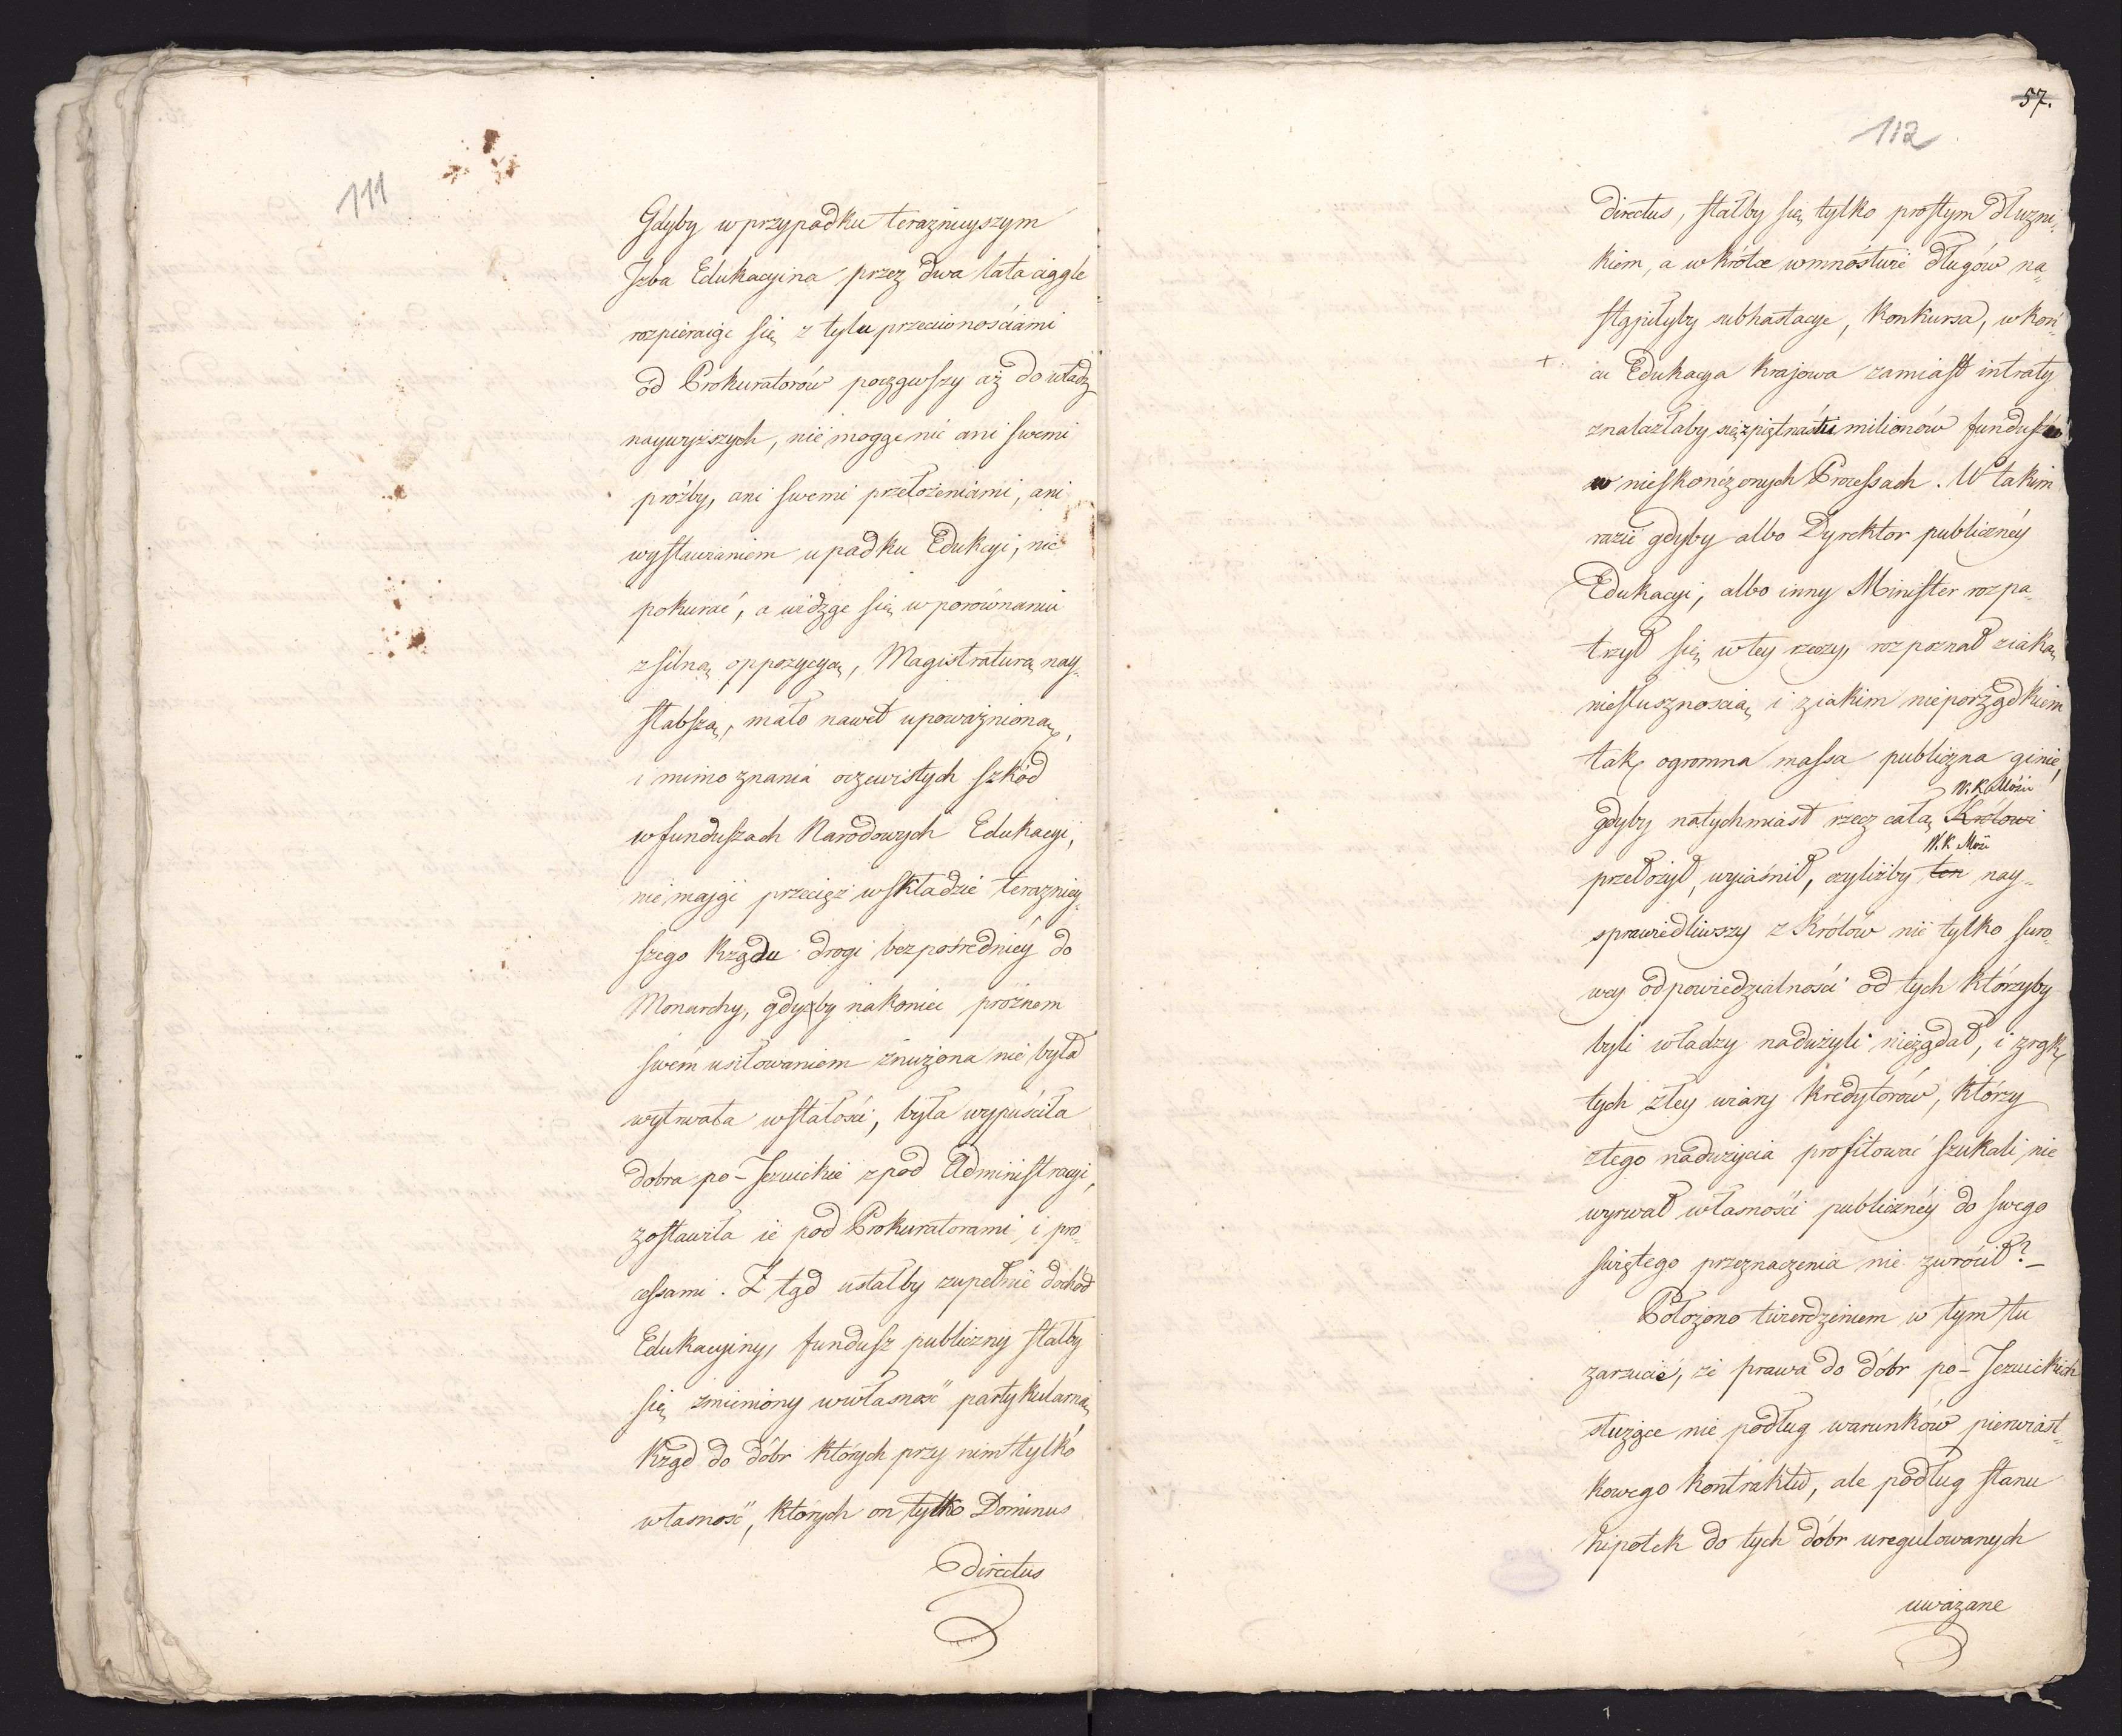 111
Gdyby w przypadku teraznieyszym
Jzba Edukacyina przez dwa lata ciągle
rozpieraiąc się z tylu przeciwnościami
od Prokuratorów począwszy aż do władz
naywyższych, nie mogąc nic ani swemi
prożby, ani swemi przełożeniami, ani
wystawianiem upadku Edukcyi, nic
pokurać, a widząc się w porównaniu
z silną oppozycyą, Magistraturą nay-
słabszą, mało nawet upoważnioną,
i mimo znania oczewistych szkód
w funduszach Narodowych Edukacyi,
nie mając przecięż w składzie terazniey-
szego Rządu drogi bezpośredniéy do
Monarchy, gdyby nakoniec prożnem
swém usiłowaniem znużona nie była
wytrwała w stałości, była wypuściła
dobra po-Jezuickie z pod Administracyi,
zostawiła ie pod Prokuratorami i pro-
cessami. Z tąd ustałby zupełnie dochód
Edukacyiny, fundusz publiczny stałby
się zmieniony w własność partykularną
Rząd do dóbr których przy nim tylko
własność, których on tylko Dominus
directus
57.
112
directus, stałby się tylko prostym dłużni-
kiem, a w krótce w mnóstwie długów na-
stąpiłyby subhastacye, Konkursa, w koń-
+ cu Edukacya Krajowa zamiast intraty
znalazłaby się z piętnastu milionów funduszu
w nieskończonych Processach. W takim
razie gdyby albo Dyrektor publicznéy
Edukacyi, albo inny Minister rozpa-
trzył się w tey rzeczy, rozpoznał z iaką
niesłusznością i z iakim nieporządkiem
tak ogromna massa publiczna ginie,
W. K. Mości
gdyby natychmiast rzecz całą Królowi
W. K. Mość
przełożył, wyiaśnił, czyliżby ten nay-
sprawiedliwszy z Królów nie tylko suro-
wey odpowiedzialności od tych którzyby
byli władzy nadużyli nieżądał, i z rąk
tych złey wiary kredytorów, którzy
z tego nadużycia profitować szukali nie
wyrwał własności publicznéy do swego
świętego przeznaczenia nie zwrócił? –
Położono twierdzeniem w tym tu
zarzucie, że prawa do dóbr po-Jezuickich
służące nie podług warunków pierwiast-
kowego kontraktu, ale podług stanu
hipotek do tych dóbr uregulowanych
uważane